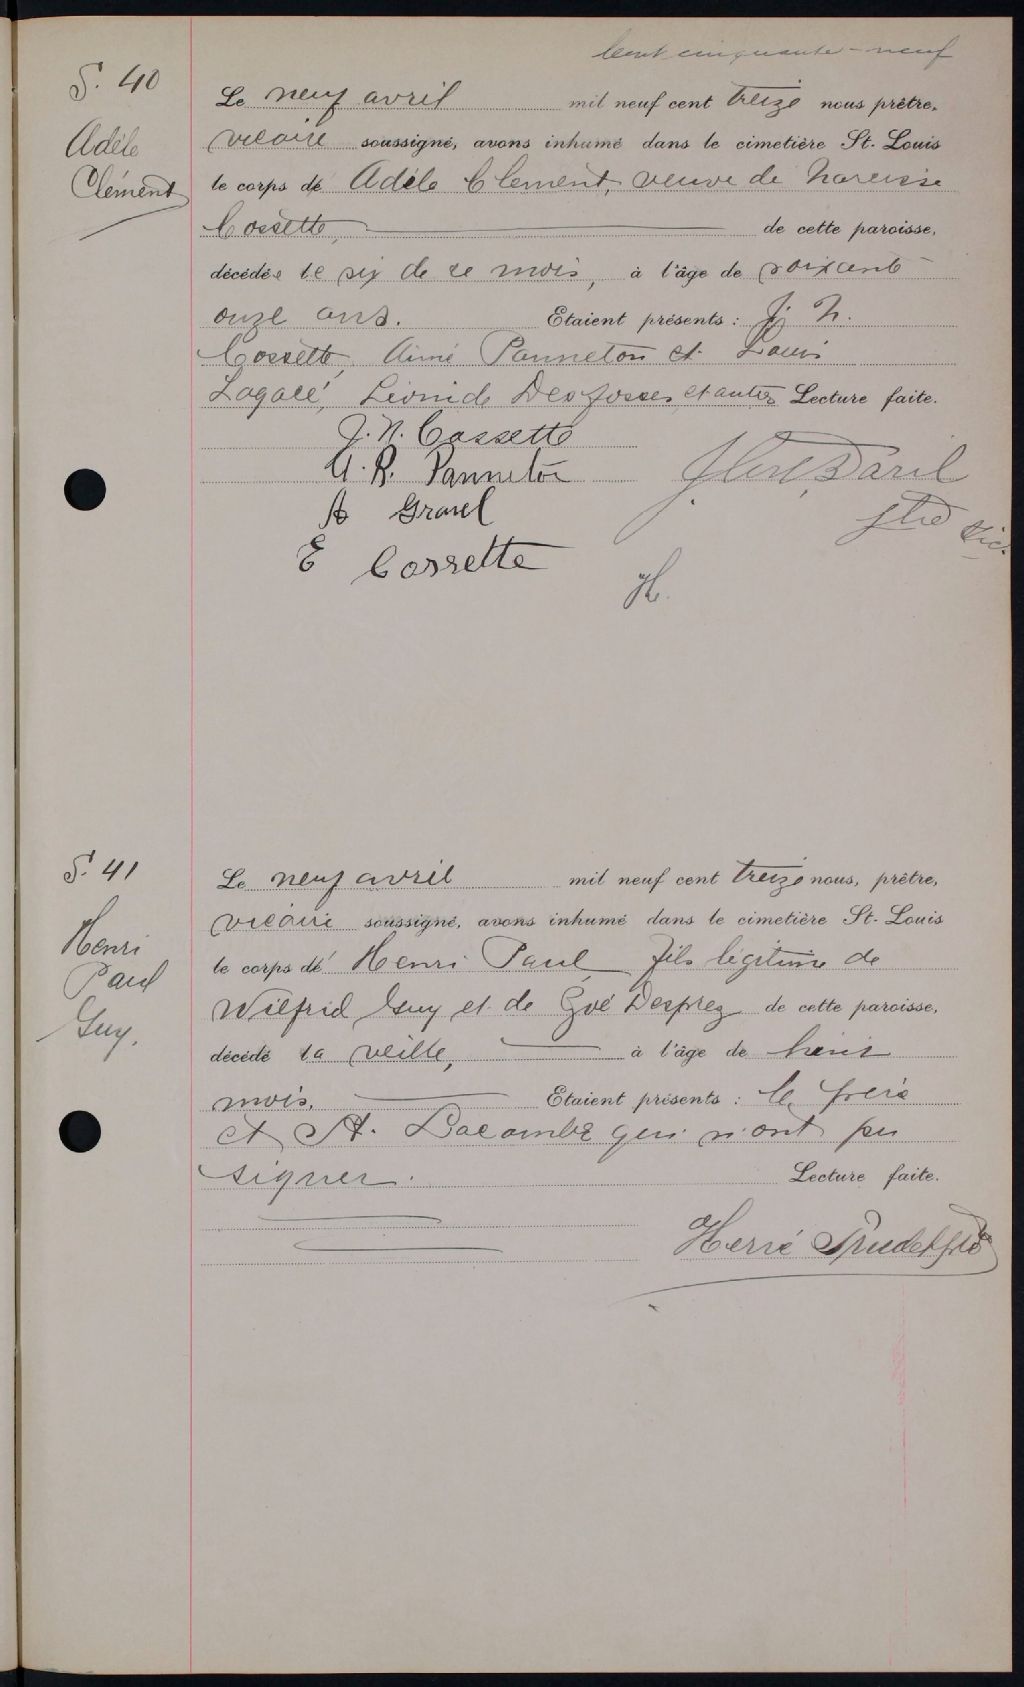 Cent cinquante-neuf
S. 40
Adèle
Clément
Le neuf avril mil neuf cent treize nous prêtre,
vicaire soussigné, avons inhumé dans le cimetière St-Louis
le corps de Adèle Clément, veuve de Narcisse
Cossette, de cette paroisse,
décédée le six de ce mois, à l'âge de soixante
onze ans. Etaient présents : J. N.
Cossette, Aimé Panneton et Louis
Lagacé, Léonide Desfosses, et autres Lecture faite.
J. N. Cossette
U. R. Panneton
A Gravel
E Cossette
ptre vic.
H.
S. 41
Henri
Paul
Guy.
Le neuf avril mil neuf cent treize nous, prêtre,
vicaire soussigné, avons inhumé dans le cimetière St-Louis
le corps de Henri Paul, fils légitime de
Wilfrid Guy et de Zoé Desprez de cette paroisse,
décédé la veille, à l'âge de huit
mois. Etaient présents : le père
et A. Lacombe qui n'ont pu
signer. Lecture faite.
Hervé Trudel ptre